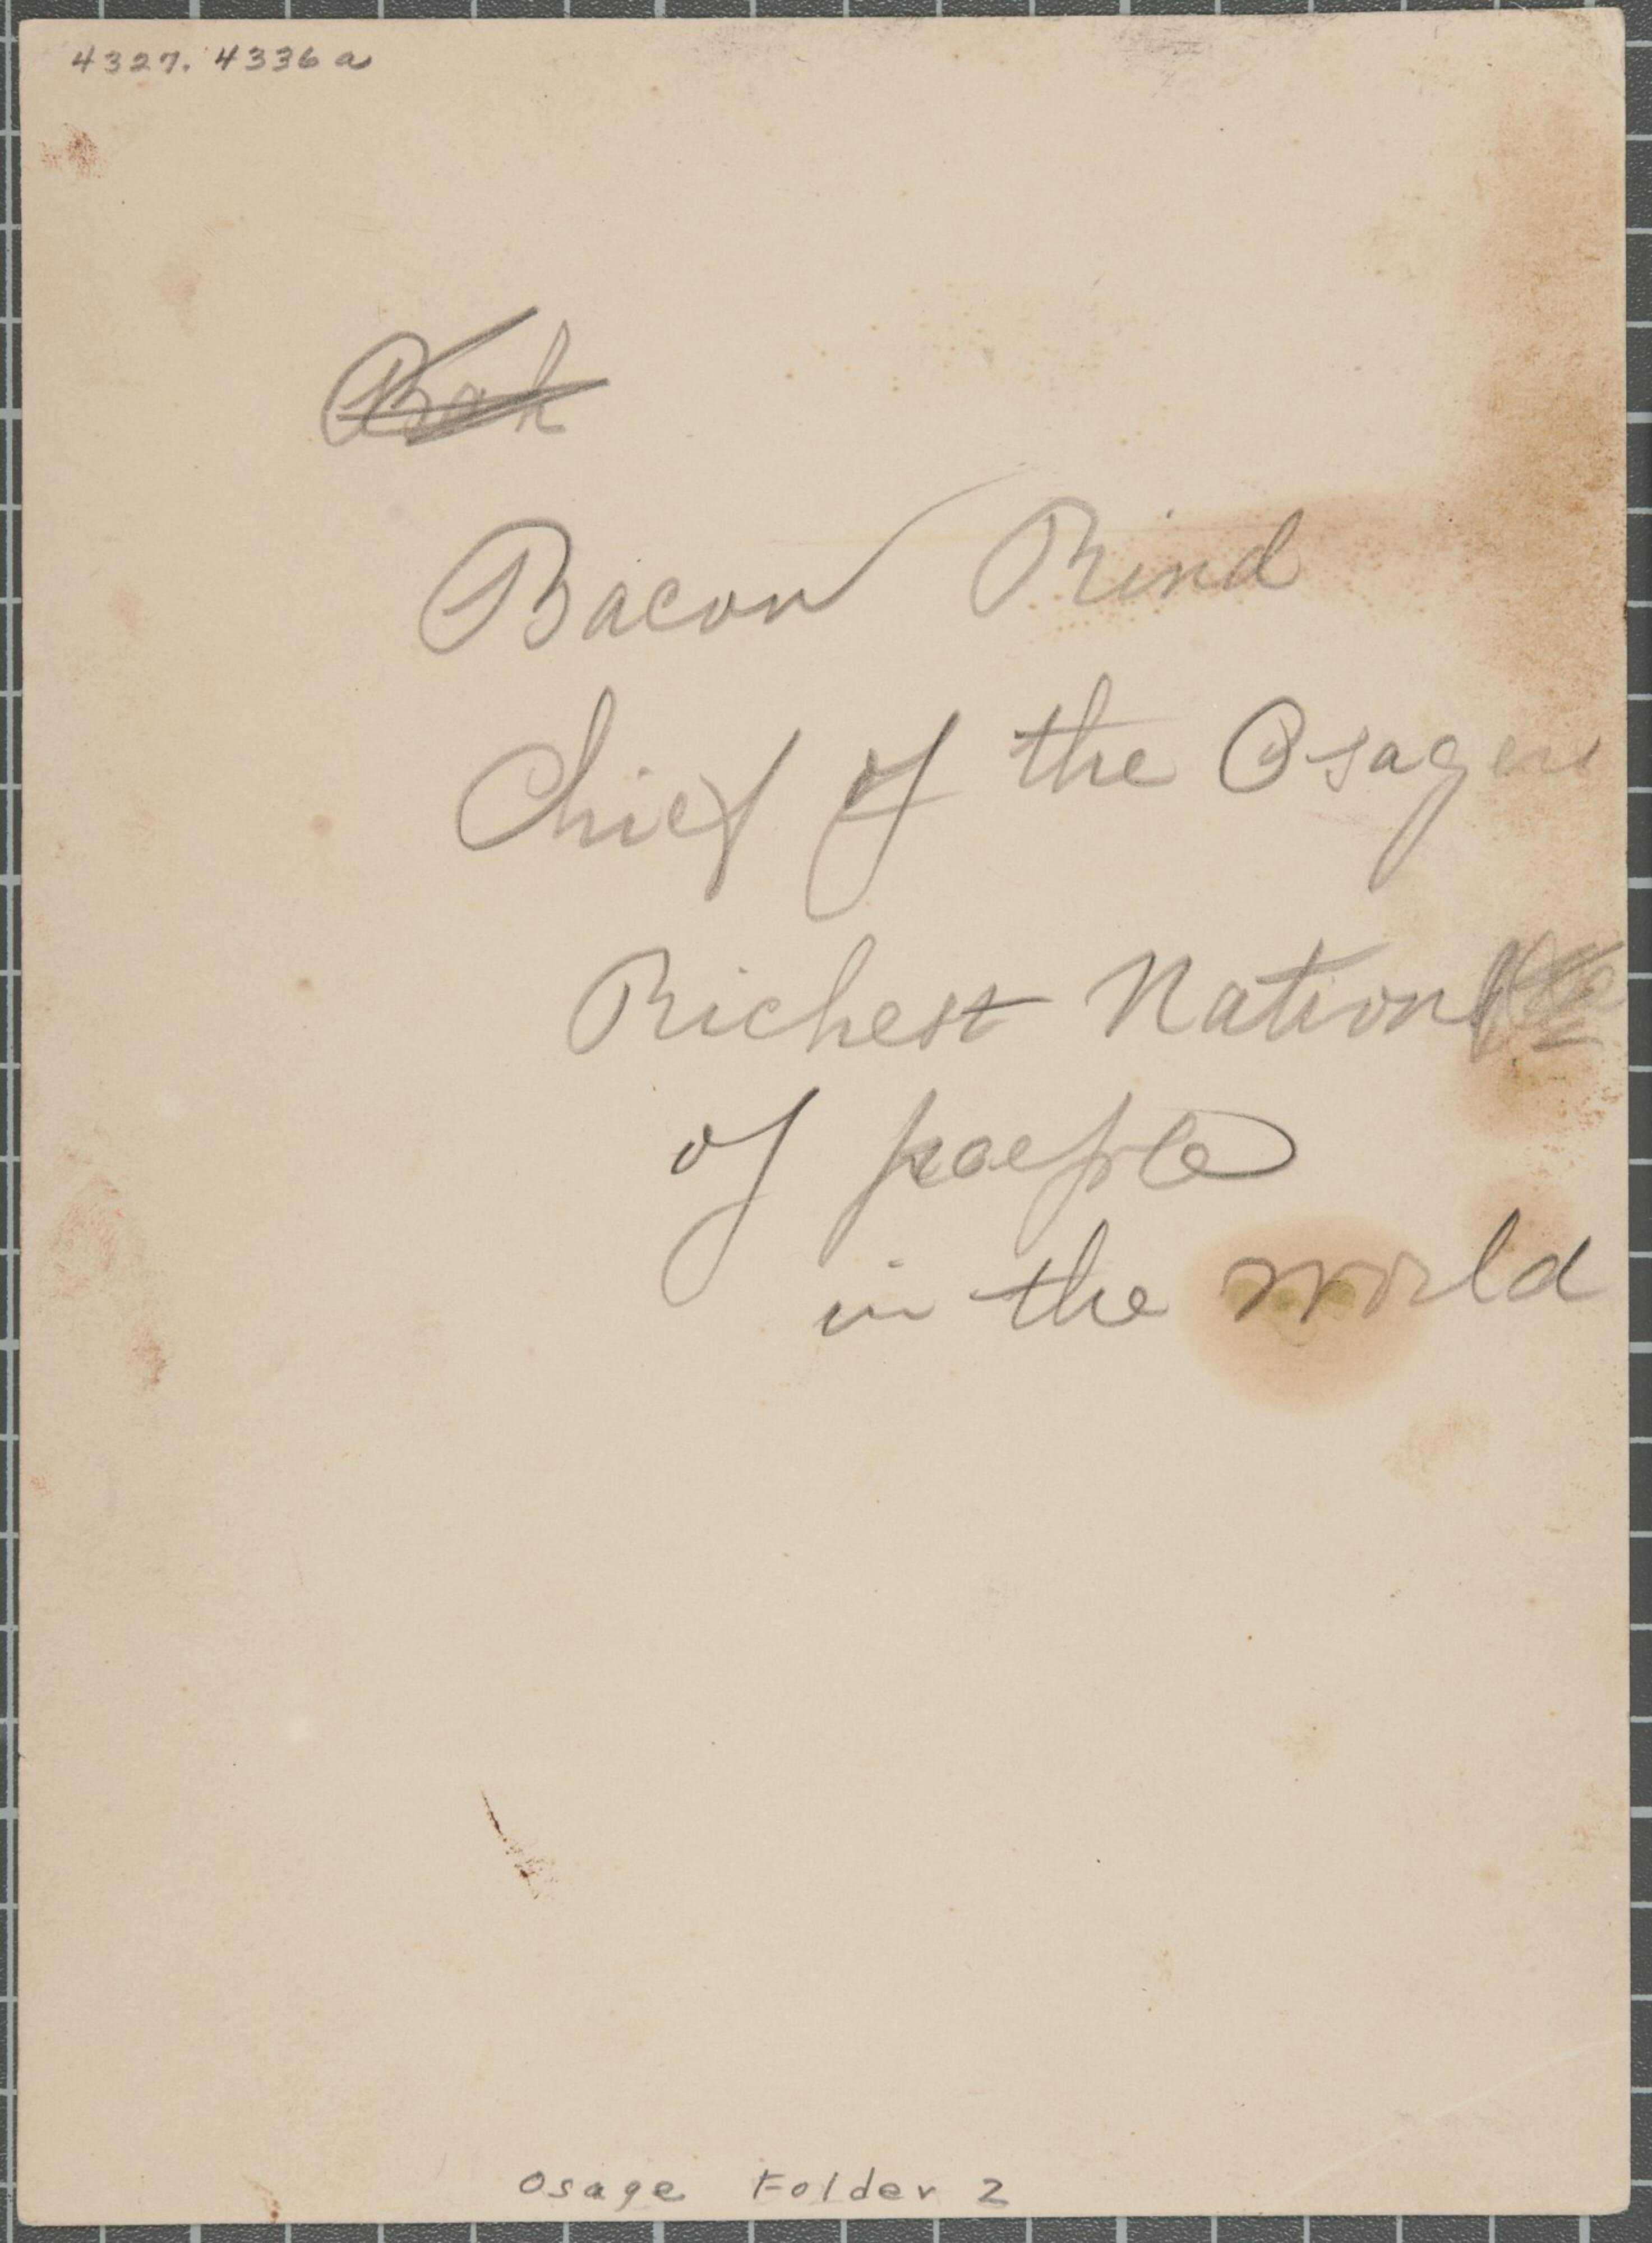 4327.4336a
Bacon Rind
Chief of the Osages
Richest Nation
of paeple
in the world
Osage Folder 2